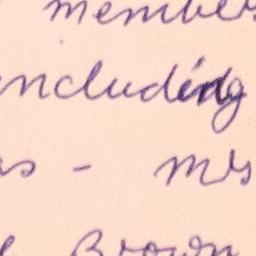 members
including
- Mrs
Brown